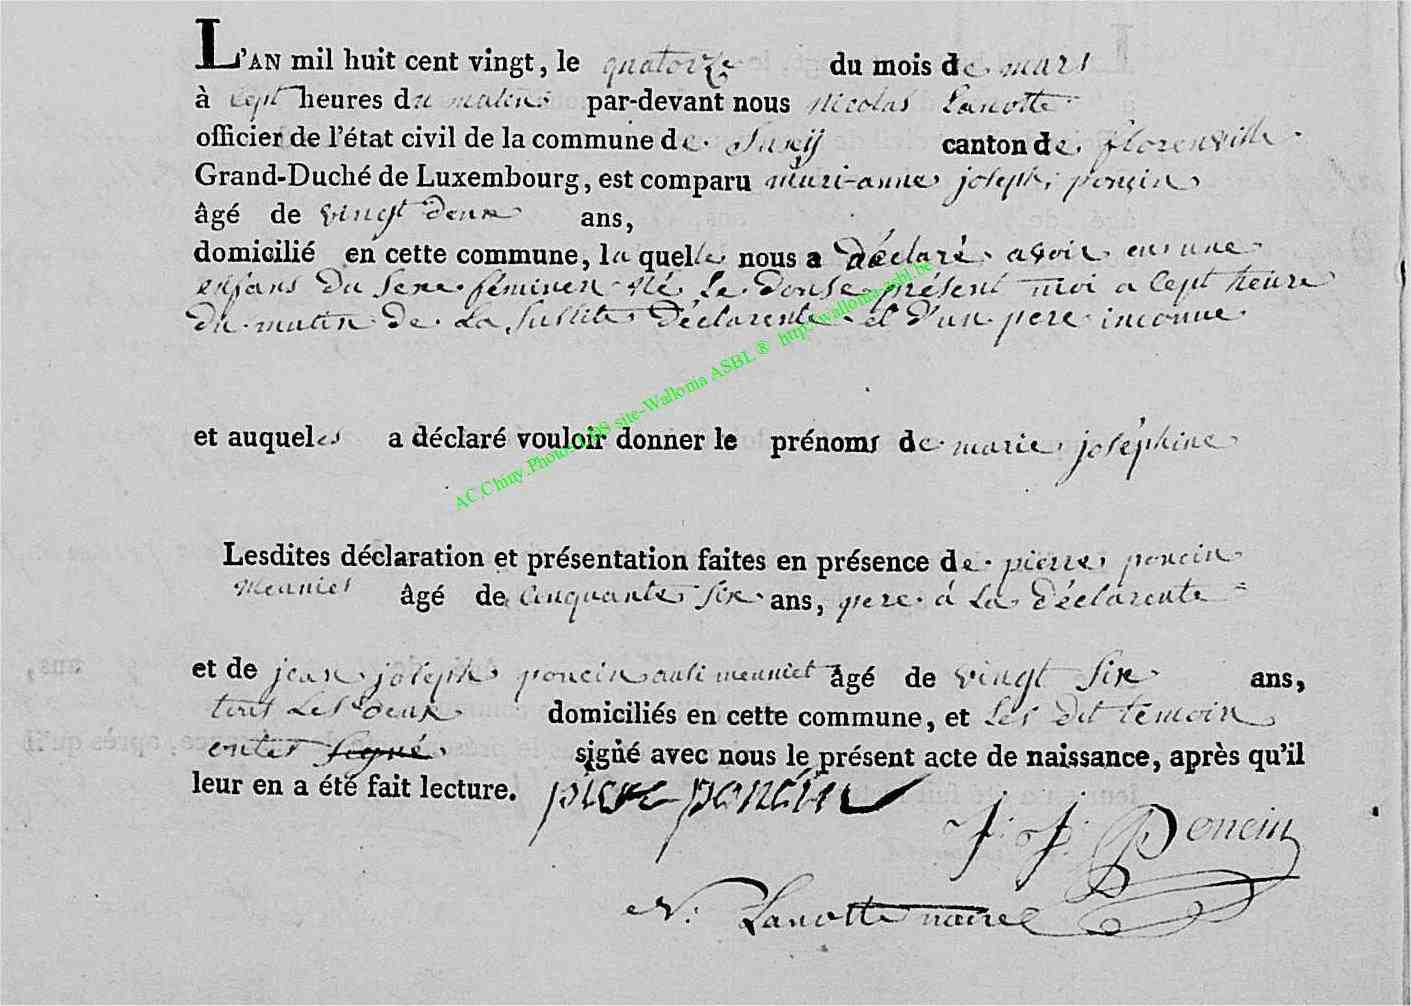 L'AN mil huit cent vingt, le quatorze du mois de mars
à sept heures du matin par-devant nous nicolas Lanotte
officier de l'état civil de la commune de Suxÿ canton de florenville
Grand-Duché de Luxembourg, est comparu marie-anne joseph ponçin
âgé de vingt deux ans,
domicilié en cette commune, la quelle nous a déclaré avoir eus une
enfans du sexe féminen né Le douse présent moi a sept heure
du matin de La susdite Déclarente et d'un pere inconnue
AC.Chiny.Photos site-Wallonia ASBL ® http://wallonia-asbl.be
et auqueles a déclaré vouloir donner le prénoms de marie joséphine
Lesdites déclaration et présentation faites en présence de pierre poncin
meunier âgé de cinquante six ans, pere à La déclarente
et de jean joseph poncin ausi meuniet âgé de vingt six ans,
tous Les deux domiciliés en cette commune, et Les dit témoin
onter signé signé avec nous le présent acte de naissance, après qu'il
leur en a été fait lecture. piere poncin
J: J: Poncin
N: Lanotte maire